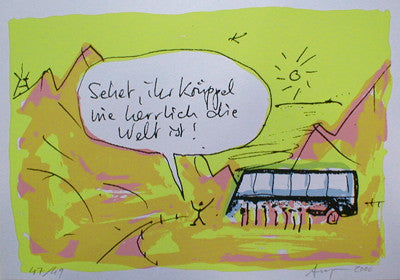 Sehet, ihr Krüppel
wie herrlich die
Welt ist!
47/49 2000